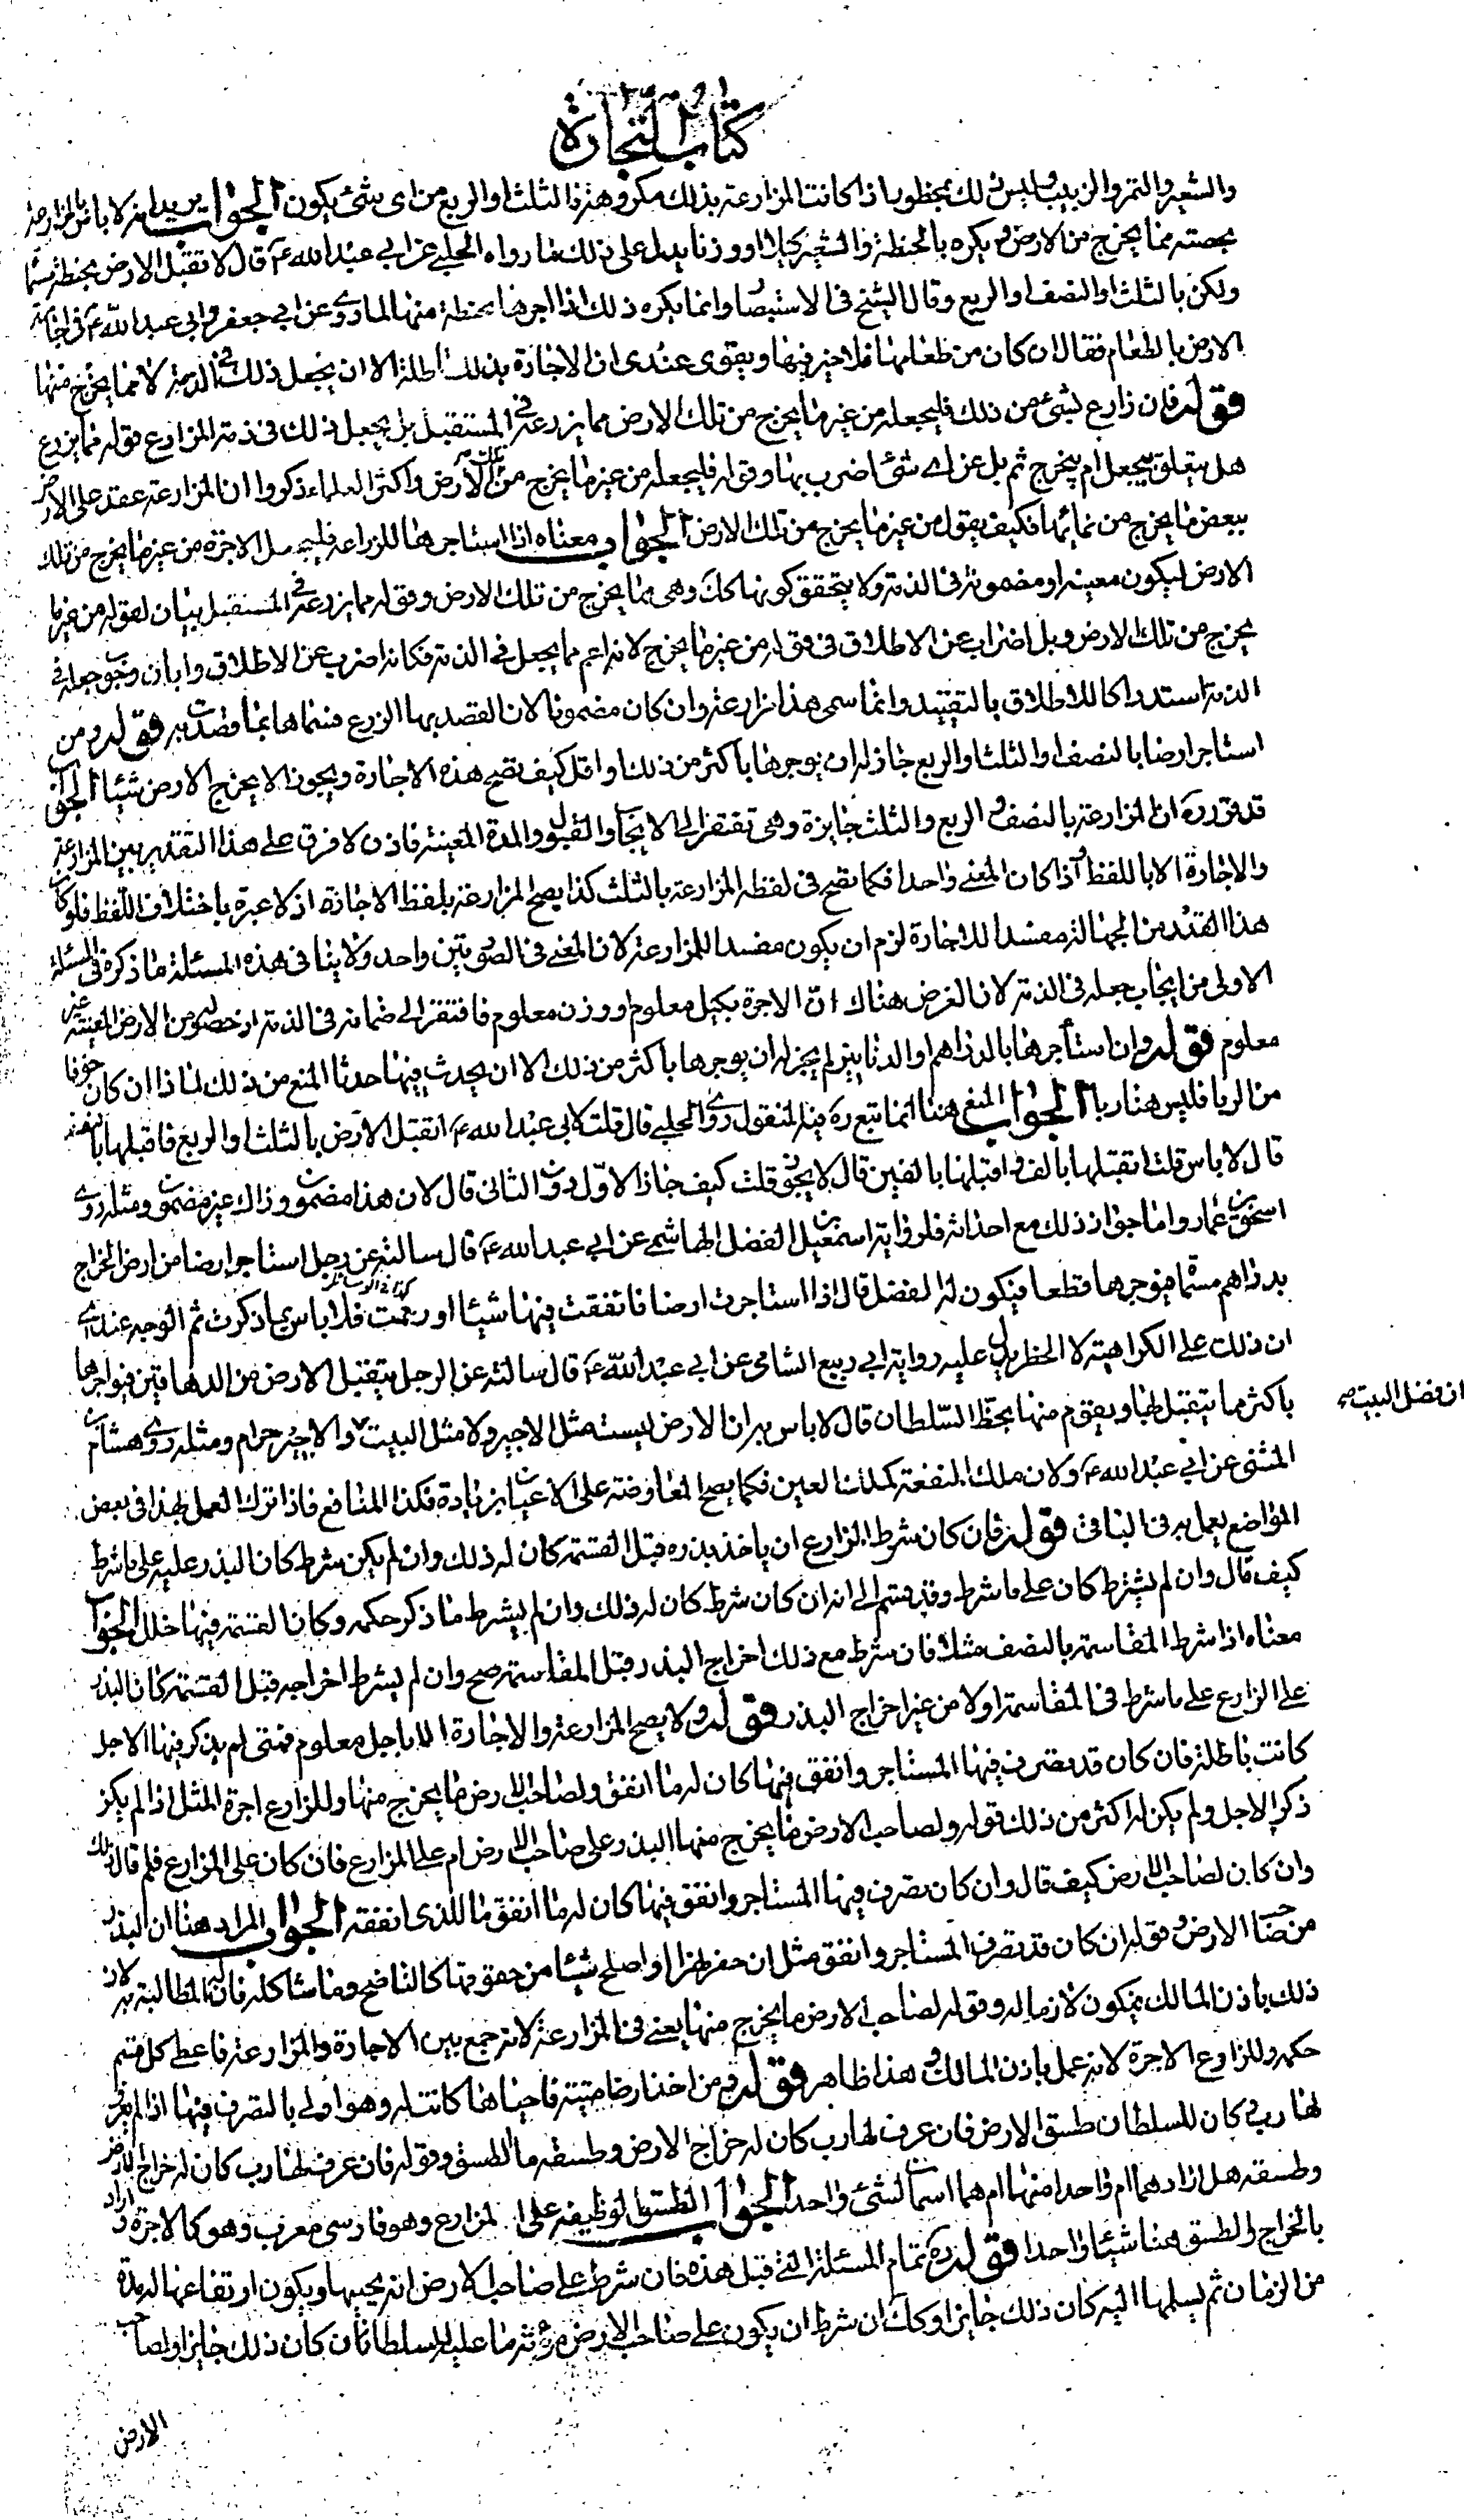 كتاب التجارة
والشعير والتمر والزبيب وليس ذلك بمحظور اذا كانت المزارعة بذلك مكروهة فالثلث او الربع من اى شئ يكون الجواب يريد انه لا باس بالمزارعة
بحصته مما يخرج من الارض ويكره بالحنطة والشعير كيلا او وزنا يدل على ذلك ما رواه الحلبي عن ابي عبد الله ع قال لا تقبل الارض بحنطة مسماة
ولكن بالثلث او النصف او الربع وقال الشيخ في الاستبصار وانما يكره ذلك اذا اجرها بحنطة منها لما روى عن ابي جعفر وابي عبد الله ع في اجارة
الارض بالطعام فقال ان كان من طعامها فلا خير فيها ويقوى عندى ان الاجارة بذلك باطلة الا ان يجعل ذلك في الذمة لا مما يخرج منها
قوله فان زارع بشئ من ذلك فليجعله من غير ما يخرج من تلك الارض مما يزرعه في المستقبل بل يجعل ذلك في ذمة المزارع قوله مما يزرع
هل يتعلق بيجعل ام بيخرج ثم بل عن اى شئ اضرب بها وقوله فليجعله من غير ما يخرج من تلك الارض واكثر العلماء ذكروا ان المزارعة عقد على الارض
ببعض ما يخرج من نمائها فكيف يقول من غير ما يخرج من تلك الارض الجواب معناه اذا استاجرها للزراعة فليجعل الاجرة من غير ما يخرج من تلك
الارض ليكون معينة او مضمونة في الذمة ولا يتحقق كونها كك وهي مما يخرج من تلك الارض وقوله مما يزرعه في المستقبل بيان لقوله من غير ما
يخرج من تلك الارض وبل اضراب عن الاطلاق في قوله من غير ما يخرج لانه اعم مما يجعل في الذمة فكانه اضرب عن الاطلاق وابان وجوب جعله في
الذمة استدراكا للاطلاق بالتقييد وانما سمى هذا مزارعة وان كان مضمونا لان القصد بها الزرع فسماها بما قصدت به قوله ومن
استاجر ارضا بالنصف او الثلث او الربع جاز له ان يوجرها باكثر من ذلك او اقل كيف تصح هذه الاجارة ويجوز ان لا يخرج الارض شيئا الجواب
قد قرر ره ان المزارعة بالنصف والربع والثلث جايزة وهي تفتقر الى الايجاب والقبول والمدة المعينة فاذن لا فرق على هذا التقدير بين المزارعة
والاجارة الا باللفظ واذا كان المعنى واحدا فكما تصح في لفظه المزارعة بالثلث كذا يصح المزارعة بلفظ الاجارة اذ لا عبرة باختلاف اللفظ فلو كان
هذا القدر من الجهالة مفسدا للاجارة لزم ان يكون مفسدا للمزارعة لان المعنى في الصورتين واحد ولا ينافى هذه المسئلة ما ذكره في المسئلة
الاولى من ايجاب جعله في الذمة لان الغرض هناك ان الاجرة بكيل معلوم او وزن معلوم فافتقر الى ضمانه في الذمة اذ حصوله من الارض المعينة غير
معلوم قوله وان استأجرها بالدراهم او الدنانير لم يجز له ان يوجرها باكثر من ذلك الا ان يحدث فيها حدثا المنع من ذلك لماذا ان كان خوفا
من الربا فليس هنا ربا الجواب المنع هنا انما تتبع ره فيه المنقول روى الحلبي قال قلت لابي عبد الله ع اتقبل الارض بالثلث او الربع فاقبلها بالنصف
قال لا باس قلت اتقبلها بالف واقبلها بالفين قال لا يجوز قلت كيف جاز الاول دون الثانى قال لان هذا مضمون وذاك غير مضمون ومثله روى
اسحق بن عمار واما جواز ذلك مع احداثه فلرواية اسمعيل بن الفضل الهاشمي عن ابي عبد الله ع قال سالته عن رجل استاجر ارضا من ارض الخراج
بدراهم مسماة فيوجرها قطعا فيكون له الفضل قال اذا استاجرت ارضا فانفقت فيها شيئا او رممت فلا باس بما ذكرت ثم الوجه عندى
ان ذلك على الكراهية لا الحظر يدل عليه رواية ابي ربيع الشامى عن ابي عبد الله ع قال سالته عن الرجل يتقبل الارض من الدهاقين فيواجرها
باكثر مما يتقبلها ويقوم منها بحظ السلطان قال لا باس به ان الارض ليست مثل الاجير ولا مثل البيت والاجير حرام ومثله روى هشام بن
ان فضل البيت صح
المثنى عن ابي عبد الله ع ولان ملك المنفعة كملك العين فكما يصح المعاوضة على الاعيان بزيادة فكذا المنافع فاذا ترك العمل بهذا في بعض
المواضع يعمل به في الباقى قوله فان كان شرط المزارع ان ياخذ بذره قبل القسمة كان له ذلك وان لم يكن شرط كان البذر عليه على ما شرط
كيف قال وان لم يشترط كان على ما شرط وقد قسم الى انه ان كان شرط كان له ذلك وان لم يشرط ما ذكر حكمه وكان القسمة فيها خلل الجواب
معناه اذا شرط المقاسمة بالنصف مثلا فان شرط مع ذلك اخراج البذر قبل المقاسمة صح وان لم يشرط اخراجه قبل القسمة كان البذر
على الزارع على ما شرط في المقاسمة اولا من غير اخراج البذر قوله ولا يصح المزارعة والاجارة الا باجل معلوم فمتى لم يذكر فيها الاجل
كانت باطلة فان كان قد تصرف فيها المستاجر وانفق فيها كان له ما انفق ولصاحب الارض ما يخرج منها وللزارع اجرة المثل اذا لم يكن
ذكر الاجل ولم يكن له اكثر من ذلك قوله ولصاحب الارض ما يخرج منها البذر على صاحب الارض ام على المزارع فان كان على المزارع فلم قال ذلك
وان كان لصاحب الارض كيف قال وان كان تصرف فيها المستاجر وانفق فيها كان له ما انفق ما الذى انفقه الجواب المراد هنا ان البذر
من صاحب الارض وقوله ان كان قد تصرف المستاجر وانفق مثل ان حفر نهرا او اصلح شيئا من حقوقها كالناضح وما شاكله فان له المطالبة به لان
ذلك باذن المالك فيكون لازما له وقوله لصاحب الارض ما يخرج منها يعنى في المزارعة لانه جمع بين الاجارة والمزارعة فاعطى كل قسم
حكمه وللزارع الاجرة لانه عمل باذن المالك وهذا ظاهر قوله ومن اخذ ارضا ميتة فاحياها كانت له وهو اولى بالتصرف فيها اذا لم يعرف
لها رب كان للسلطان طسق الارض فان عرف لها رب كان له خراج الارض وطسقه ما الطسق وقوله فان عرف لها رب كان له خراج الارض
وطسقه هل ارادهما ام واحدا منهما ام هما اسما لشئ واحد الجواب الطسق الوظيفة على المزارع وهو فارسى معرب وهو كالاجرة واراد
بالخراج والطسق هنا شيئا واحدا قوله ره تمام المسئلة التى قبل هذه فان شرط على صاحب الارض انه يحييها ويكون ارتفاعها له مدة
من الزمان ثم يسلمها اليه كان ذلك جايزا وكك ان شرط ان يكون على صاحب الارض مؤنة ما عليه للسلطان كان ذلك جايزا ولصاحب
الارض